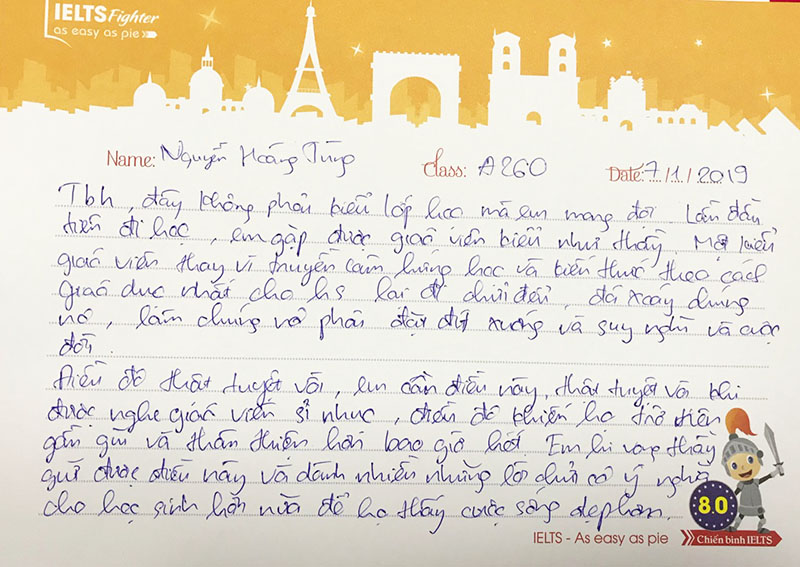 IELTS Fighter
as easy as pie
Name: Nguyễn Hoàng Tùng Class: A260 Date: 7/1/2019
Tbh, đây không phải kiểu lớp học mà em mong đợi. Lần đầu
tiên đi học, em gặp được giáo viên kiểu như thầy. Một kiểu
giáo viên thay vì truyền cảm hứng học và kiến thức theo cách
giáo dục nhất cho hs lại đi chửi đểu, đá xoáy chúng
nó, làm chúng nó phải đặt đít xuống và suy nghĩ về cuộc
đời.
Điều đó thật tuyệt vời, em cần điều này, thật tuyệt vời khi
được nghe giáo viên sỉ nhục, điều đó khiến họ trở nên
gần gũi và thân thiện hơn bao giờ hết. Em hi vọng thầy
giữ được điều này và dành nhiều những lời chửi có ý nghĩa
cho học sinh hơn nữa để họ thấy cuộc sống đẹp hơn.
8.0
IELTS - As easy as pie
Chiến binh IELTS